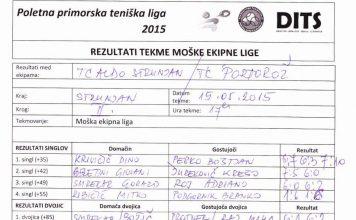 Poletna primorska teniška liga
2015
DITS
REZULTATI TEKME MOŠKE EKIPNE LIGE
Rezultati med ekipama: TC ALDO STRUNJAN TC PORTOROŽ
Kraj: STRUNJAN Datum tekme: 19.05.2015
Krog: II Ura tekme: 17
Tekmovanje: Moška ekipna liga
REZULTATI SINGLOV Domačin Gostujoči Rezultat
1. singl (+35) KRIVIČIČ DINO PERKO BOŠTJAN 6:7 6:3 7:10
2. singl (+45) GIOVANI JUREKOVIČ KREŠO 7:5 6:0
3. singl (+49) SMREKAR GORAZD ROJ ADRIANO 6:0 6:2
4. singl (+55) MITKO PODGORNIK BRANKO
REZULTATI DVOJIC Domača dvojica Gostujoča dvojica Rezultat